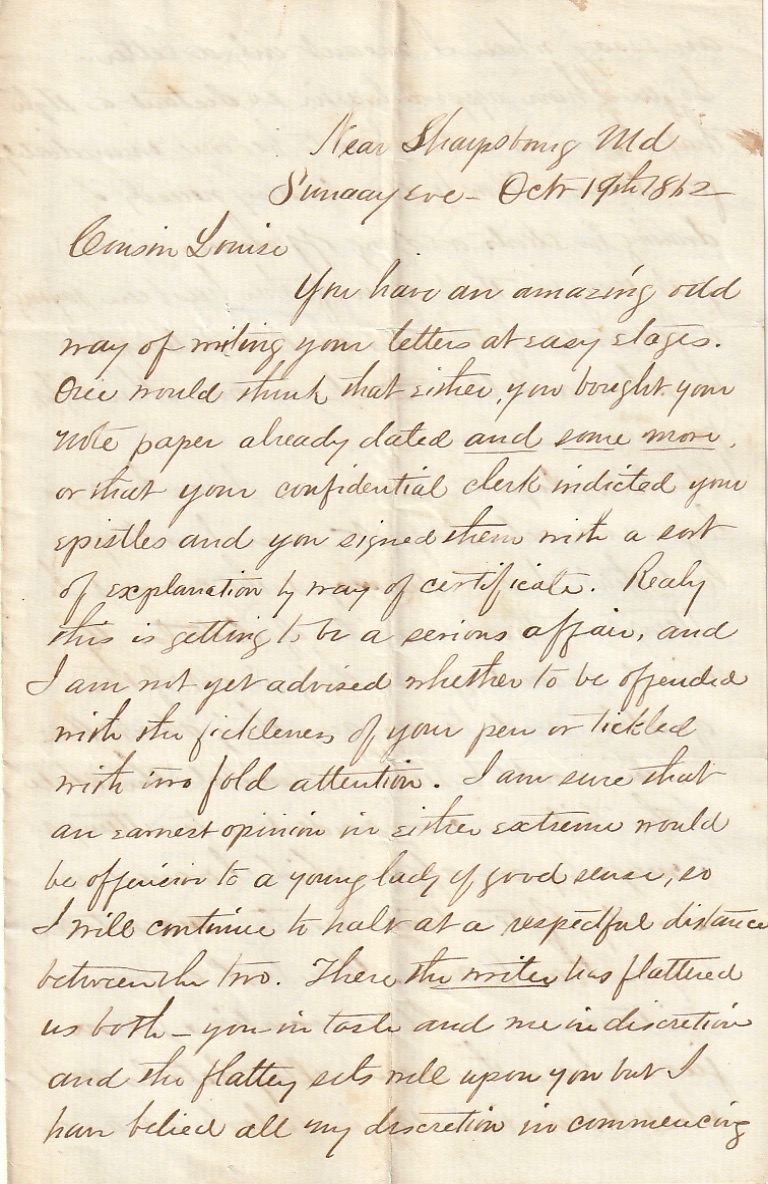 Near Sharpsburg Md
Sunday eve - Octr 19th 1862
Cousin Louise
You have an amazing odd
way of writing your letters at easy stages.
One would think that either you bought your
note paper already dated and some more,
or that your confidential clerk indicted your
epistles and you signed them with a sort
of explanation by way of certificate. Realy
this is getting to be a serious affair, and
I am not yet advised whether to be offended
with the fickleness of your pen or tickled
with two fold attention. I am sure that
an earnest opinion in either extreme would
be offensive to a young lady of good sense, so
I will continue to halt at a respectful distance
between the two. There the writer has flattered
us both - you in taste and me in discretion
and the flattery sets well upon you but I
have belied all my discretion in commencing